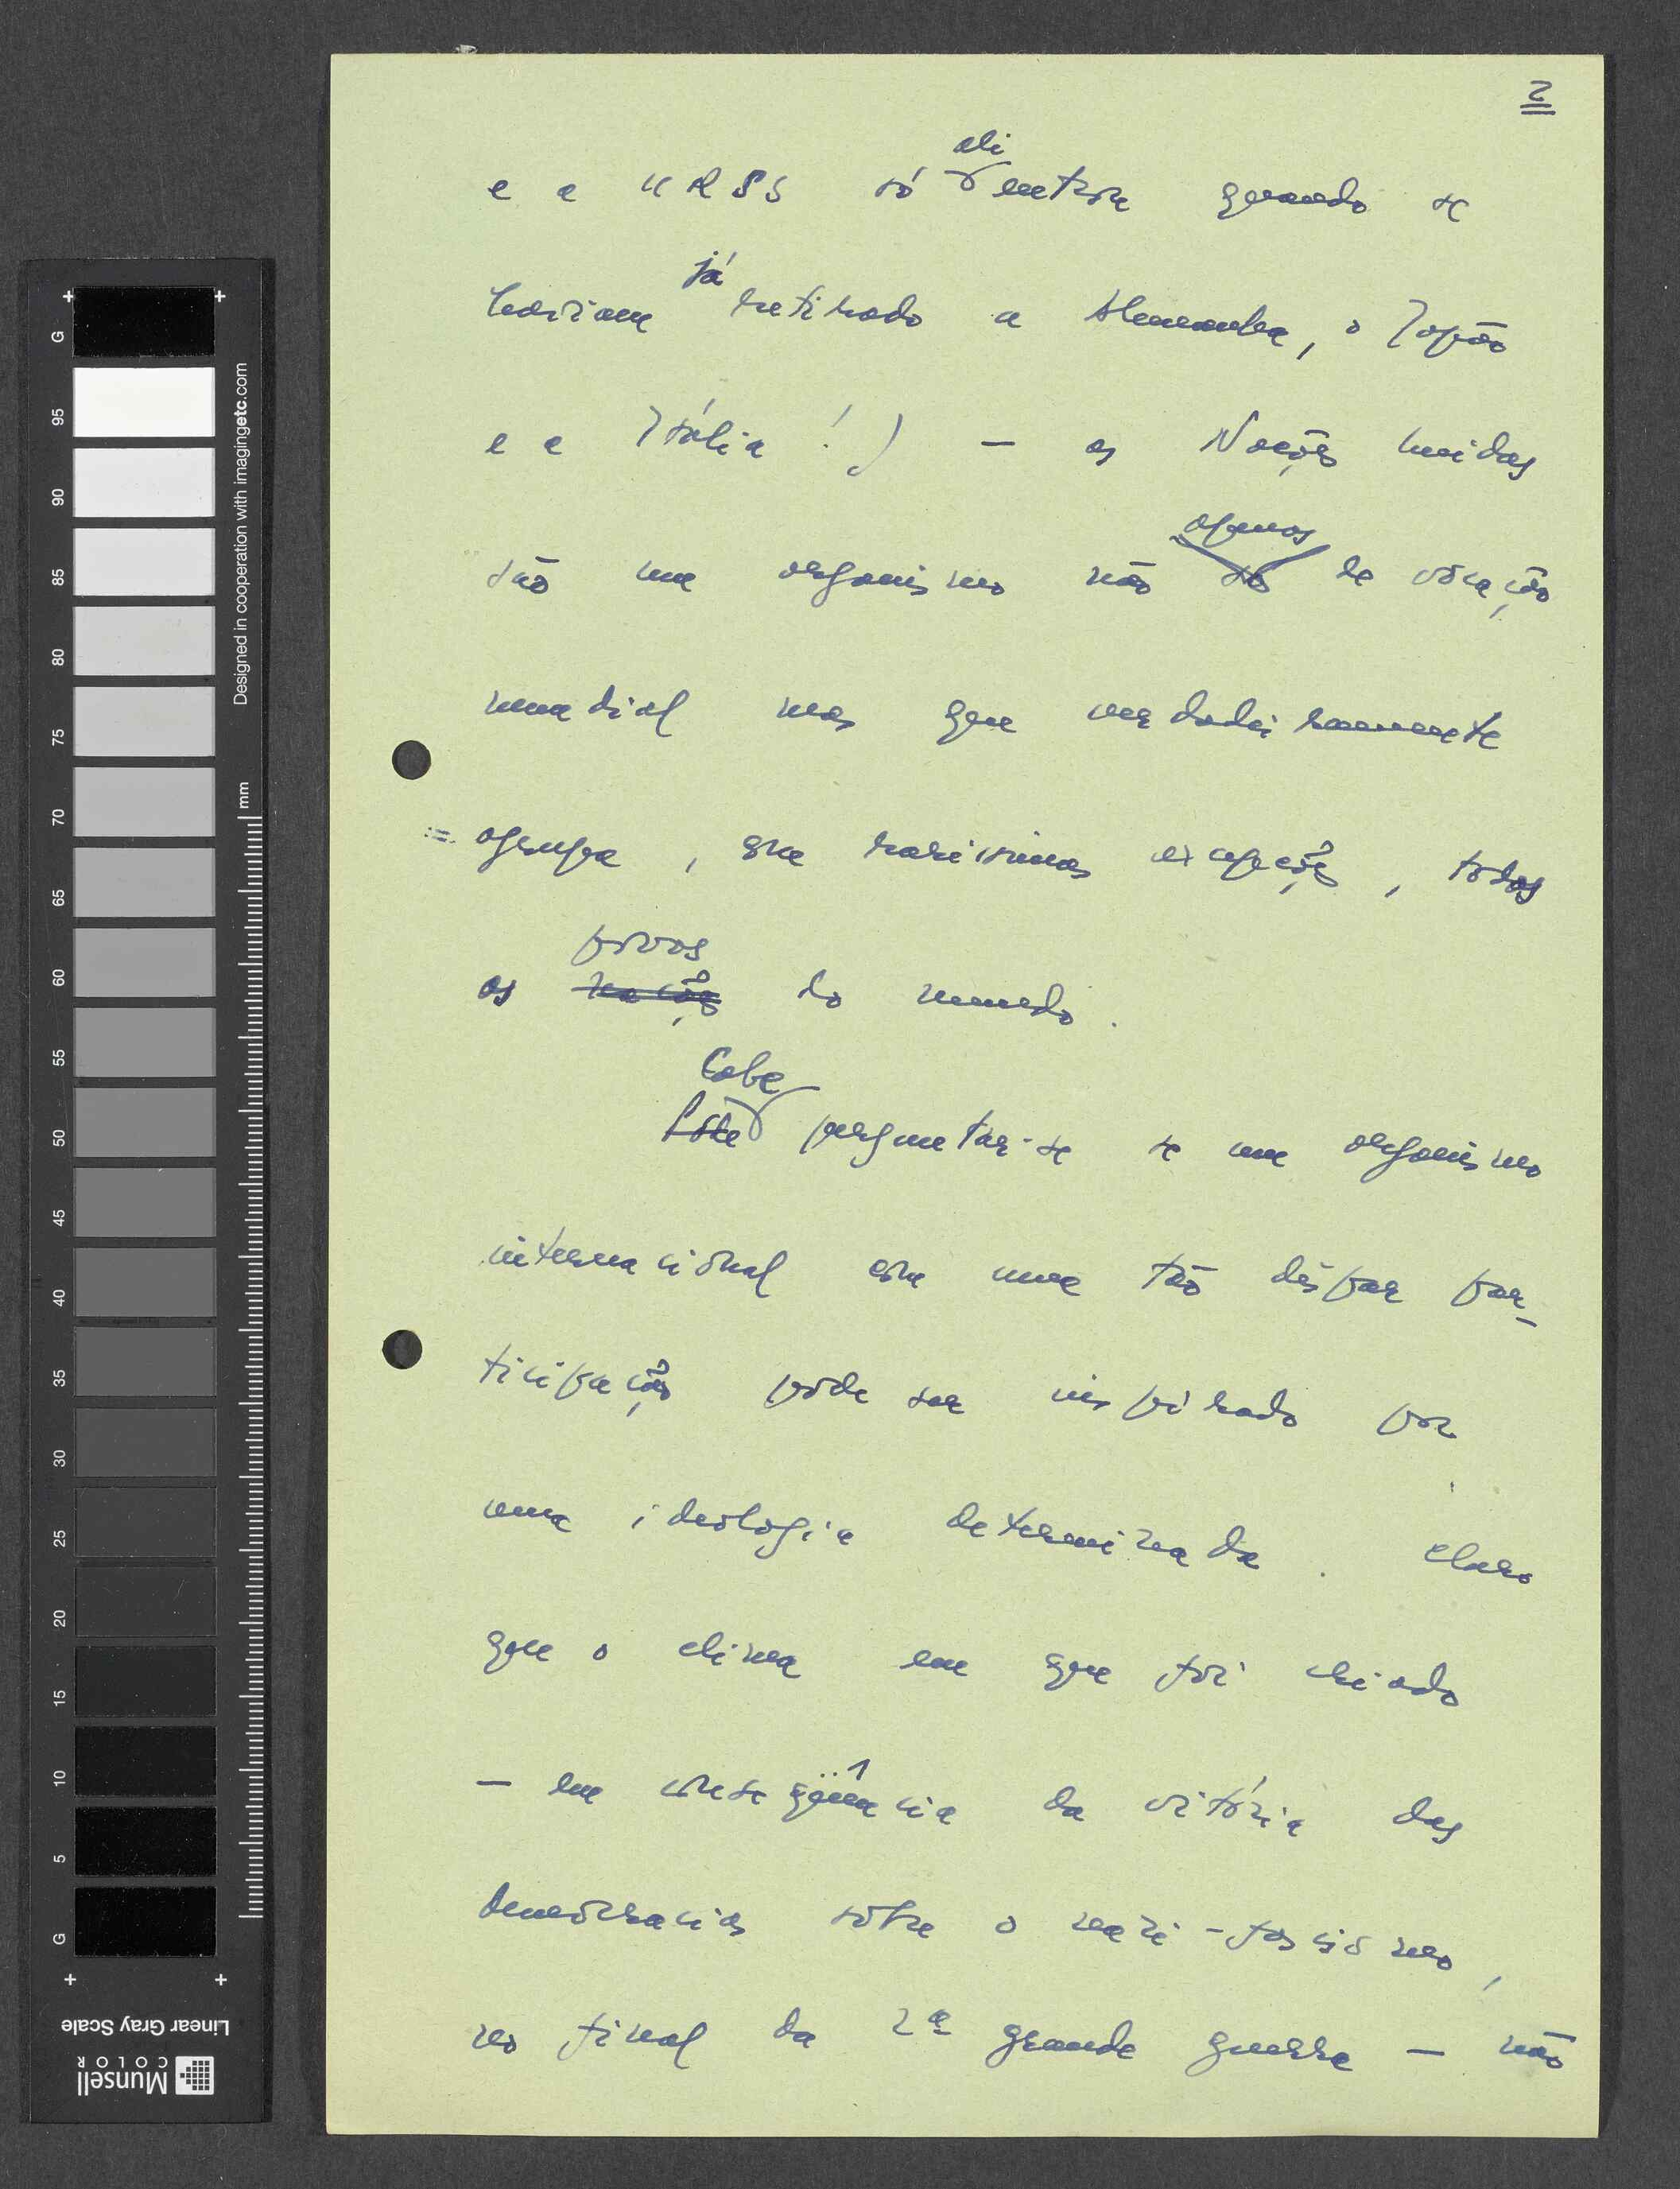 2
e a URSS só ali entrou quando se
haviam já retirado a Alemanha, o Japão
e a Itália!) — as Nações Unidas
são um organismo não só apenas de vocação
mundial mas que verdadeiramente
agrupa, com raríssimas excepções, todos
os nações povos do mundo.
Cabe perguntar-se se um organismo
internacional com uma tão díspar par-
ticipação pode ser inspirado por
uma ideologia determinada. Claro
que o clima em que foi criado
— em conseqüência da vitória das
democracias sôbre o nazi-fascismo,
no final da 2ª grande guerra — não
G 95 90 85 80 75 70 65 60 55 50 45 40 35 30 25 20 15 10 5 G
Designed in cooperation with imagingetc.com
mm
Linear Gray Scale
Munsell
COLOR